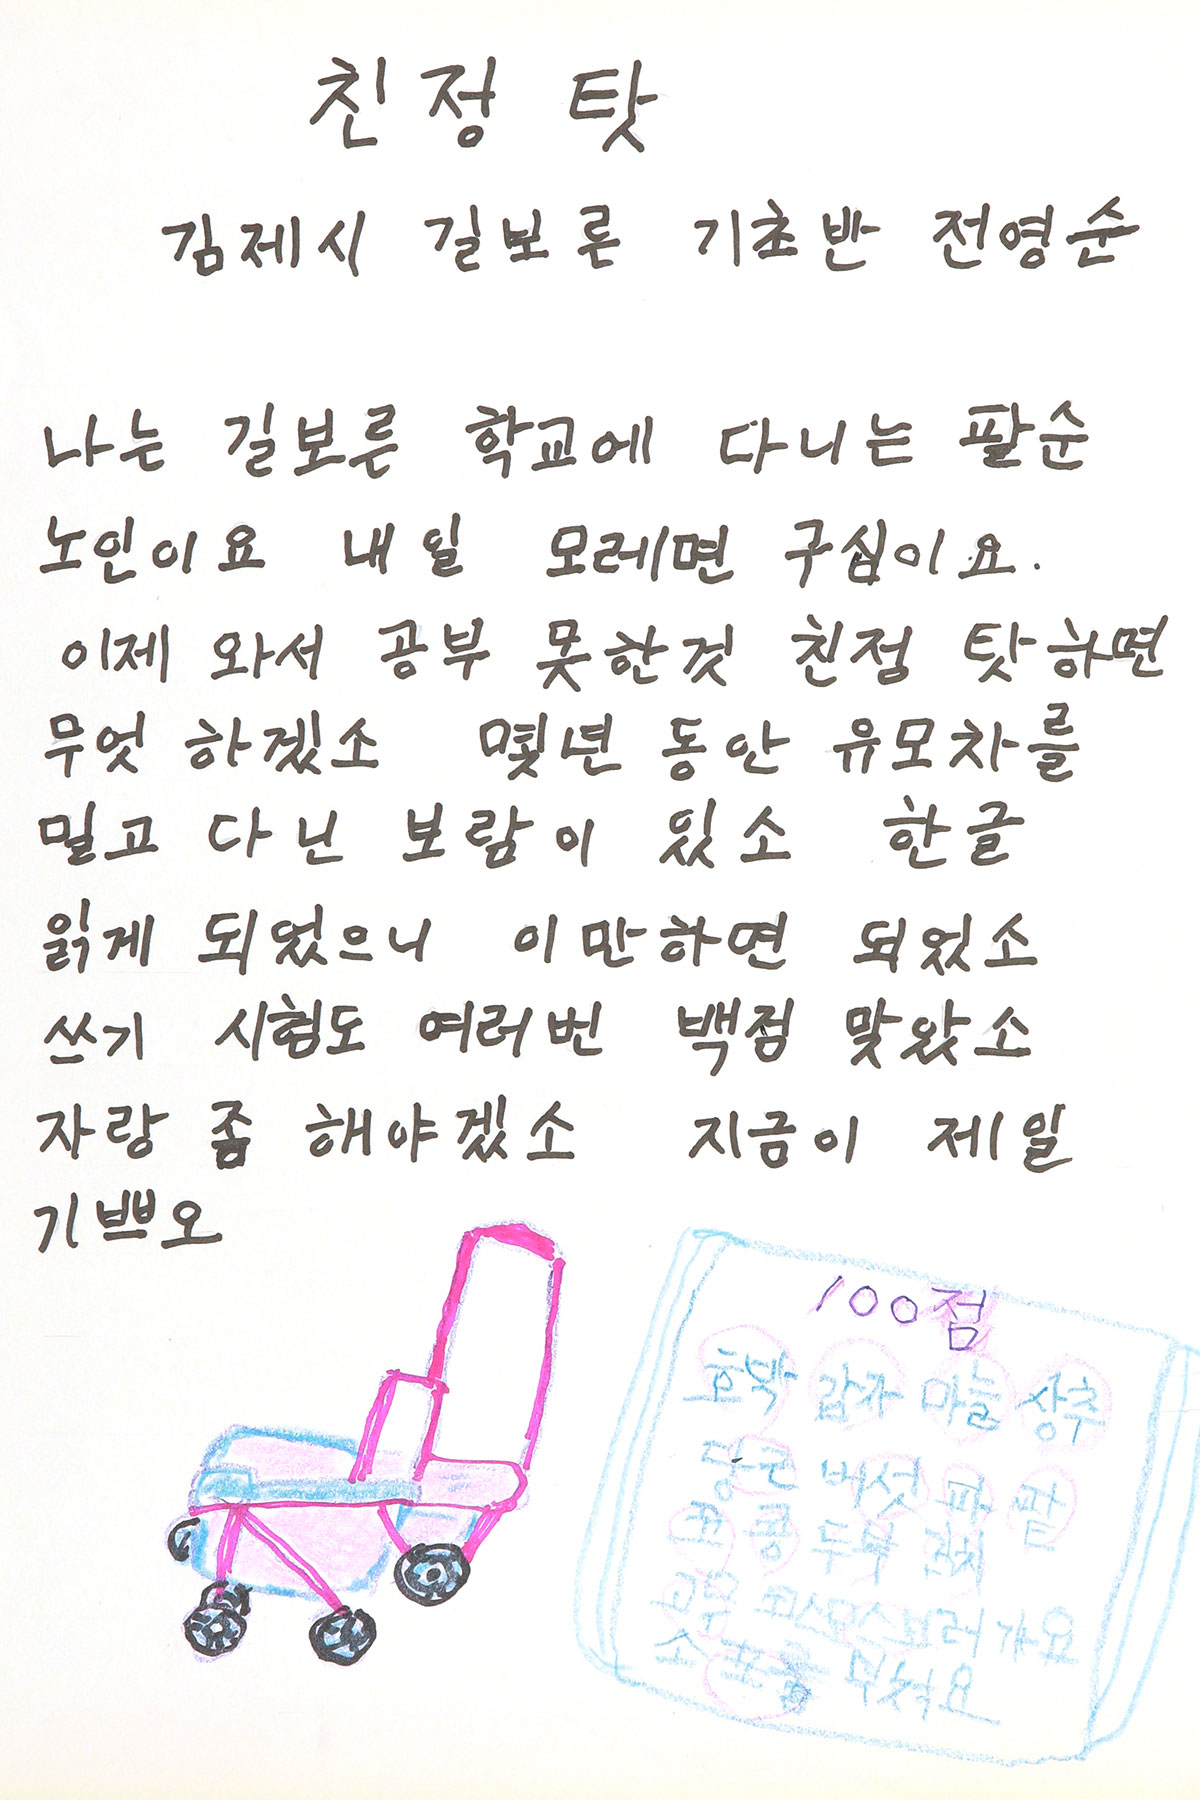 친정 탓
김제시 길보른 기초반 전영순
나는 길보른 학교에 다니는 팔순
노인이요 내일 모레면 구십이요.
이제 와서 공부 못한것 친정 탓하면
무엇 하겠소 몇년 동안 유모차를
밀고 다닌 보람이 있소 한글
읽게 되었으니 이만하면 되었소
쓰기 시험도 여러번 백점 맞았소
자랑 좀 해야겠소 지금이 제일
기쁘오
100점
호박 감자 마늘 상추
당근 버섯 파 팥
콩 두부
코스모스 보러 가요
소